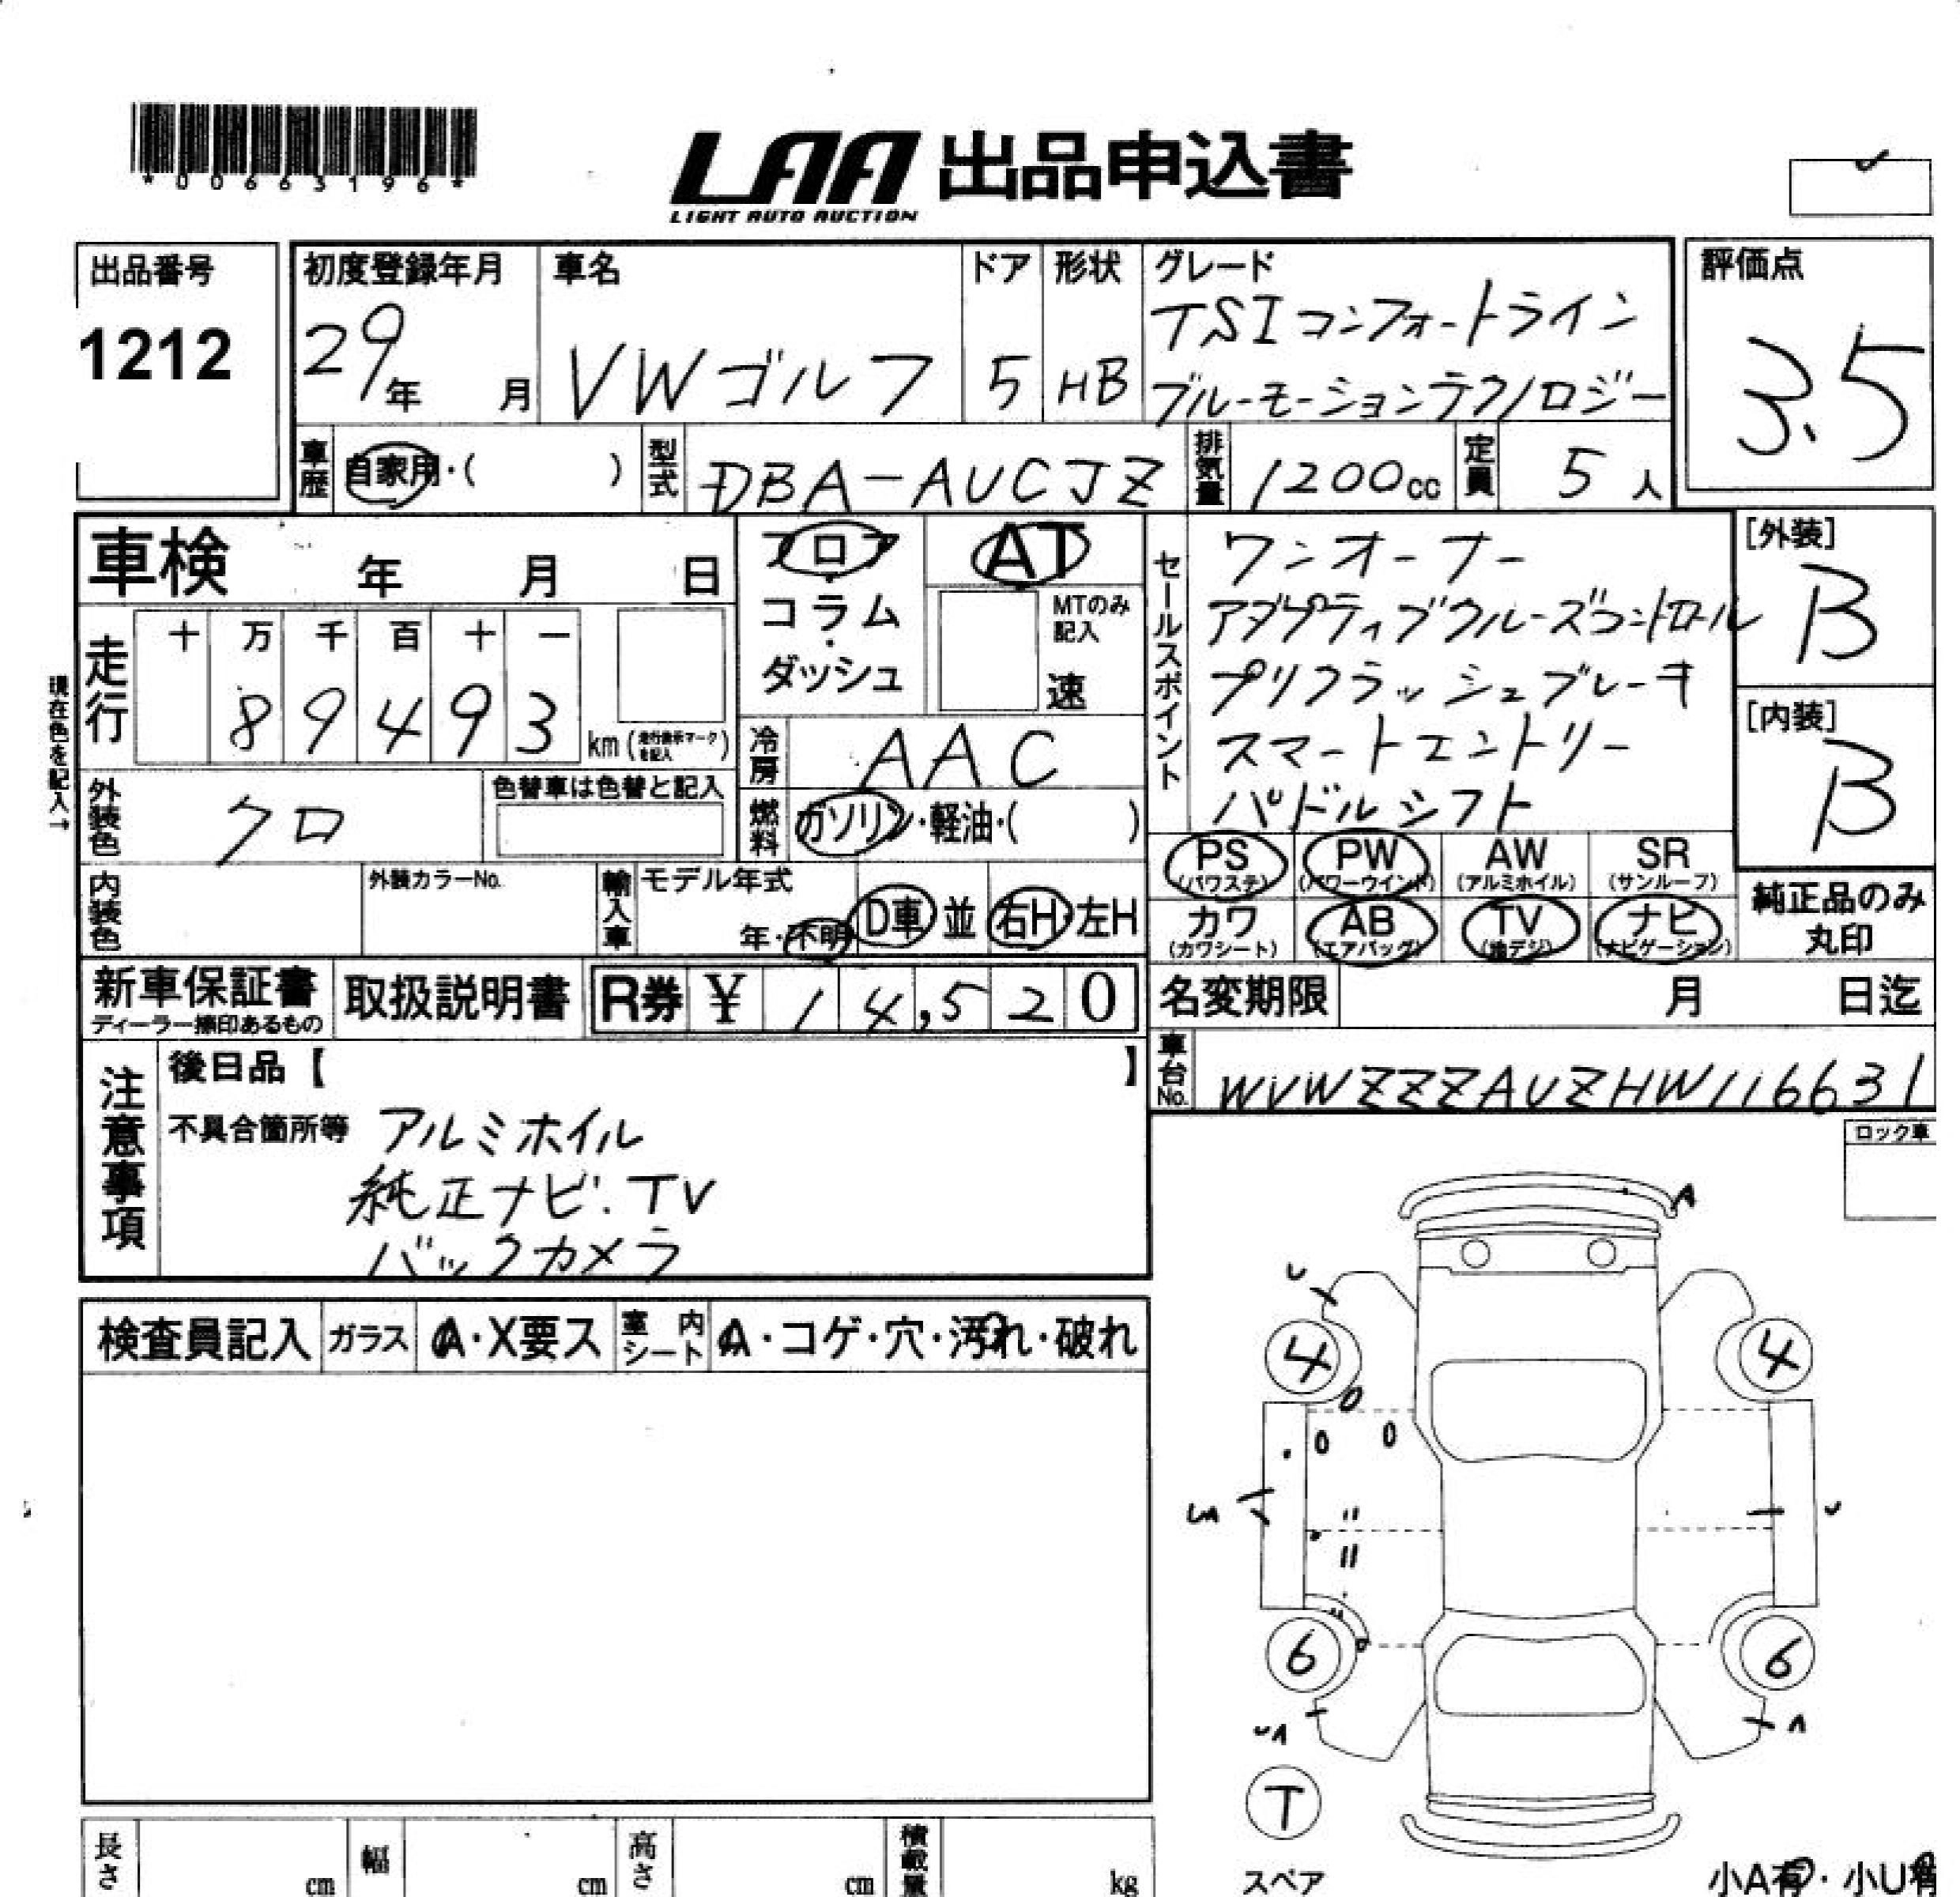 *00663196*
LAA 出品申込書
LIGHT AUTO AUCTION
出品番号
1212
初度登録年月
29年 月
車名
VW ゴルフ
ドア
5
形状
HB
グレード
TSI コンフォートライン
ブルーモーションテクノロジー
評価点
3.5
車歴 自家用・( )
型式 DBA-AUCJZ
排気量 1200cc
定員 5人
車検 年 月 日
フロア
・
コラム
・
ダッシュ
AT
MTのみ記入
速
走行
十 万 千 百 十 一
8 9 4 9 3 km(走行表示マークを記入)
現在色を記入→
外装色 クロ
色替車は色替と記入
冷房 AAC
燃料 ガソリン・軽油・( )
セールスポイント
ワンオーナー
アダプティブクルーズコントロール
プリクラッシュブレーキ
スマートエントリー
パドルシフト
[外装]
B
[内装]
B
PS (パワステ)
PW (パワーウインド)
AW (アルミホイル)
SR (サンルーフ)
カワ (カワシート)
AB (エアバッグ)
TV (地デジ)
ナビ (ナビゲーション)
純正品のみ
丸印
内装色
外装カラーNo.
輸入車
モデル年式
年・不明
D車 並
右H・左H
新車保証書
ディーラー捺印あるもの
取扱説明書
R券 ¥ 14,520
名変期限 月 日迄
車台No. WVWZZZAUZHW116631
注意事項
後日品【 】
不具合箇所等 アルミホイル
純正ナビ.TV
バックカメラ
ロック車
検査員記入
ガラス A・X要ス
室内シート A・コゲ・穴・汚れ・破れ
A
U
4 4
UA
U
6 6
UA
A
T
スペア
小A有・小U有
長さ cm
幅 cm
高さ cm
積載量 kg